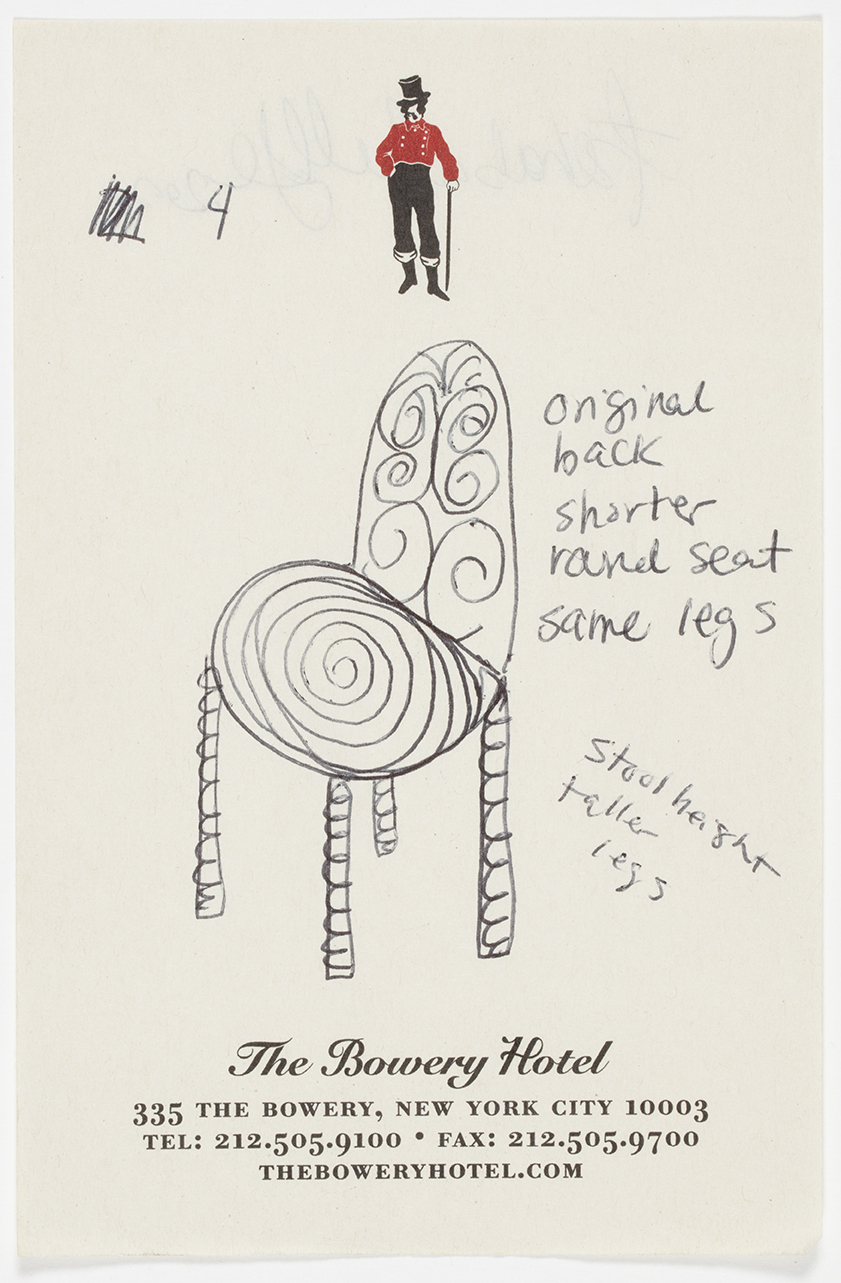 4
original
back
shorter
round seat
same legs
stool height
taller
legs
The Bowery Hotel
335 THE BOWERY, NEW YORK CITY 10003
TEL: 212.505.9100 • FAX: 212.505.9700
THEBOWERYHOTEL.COM